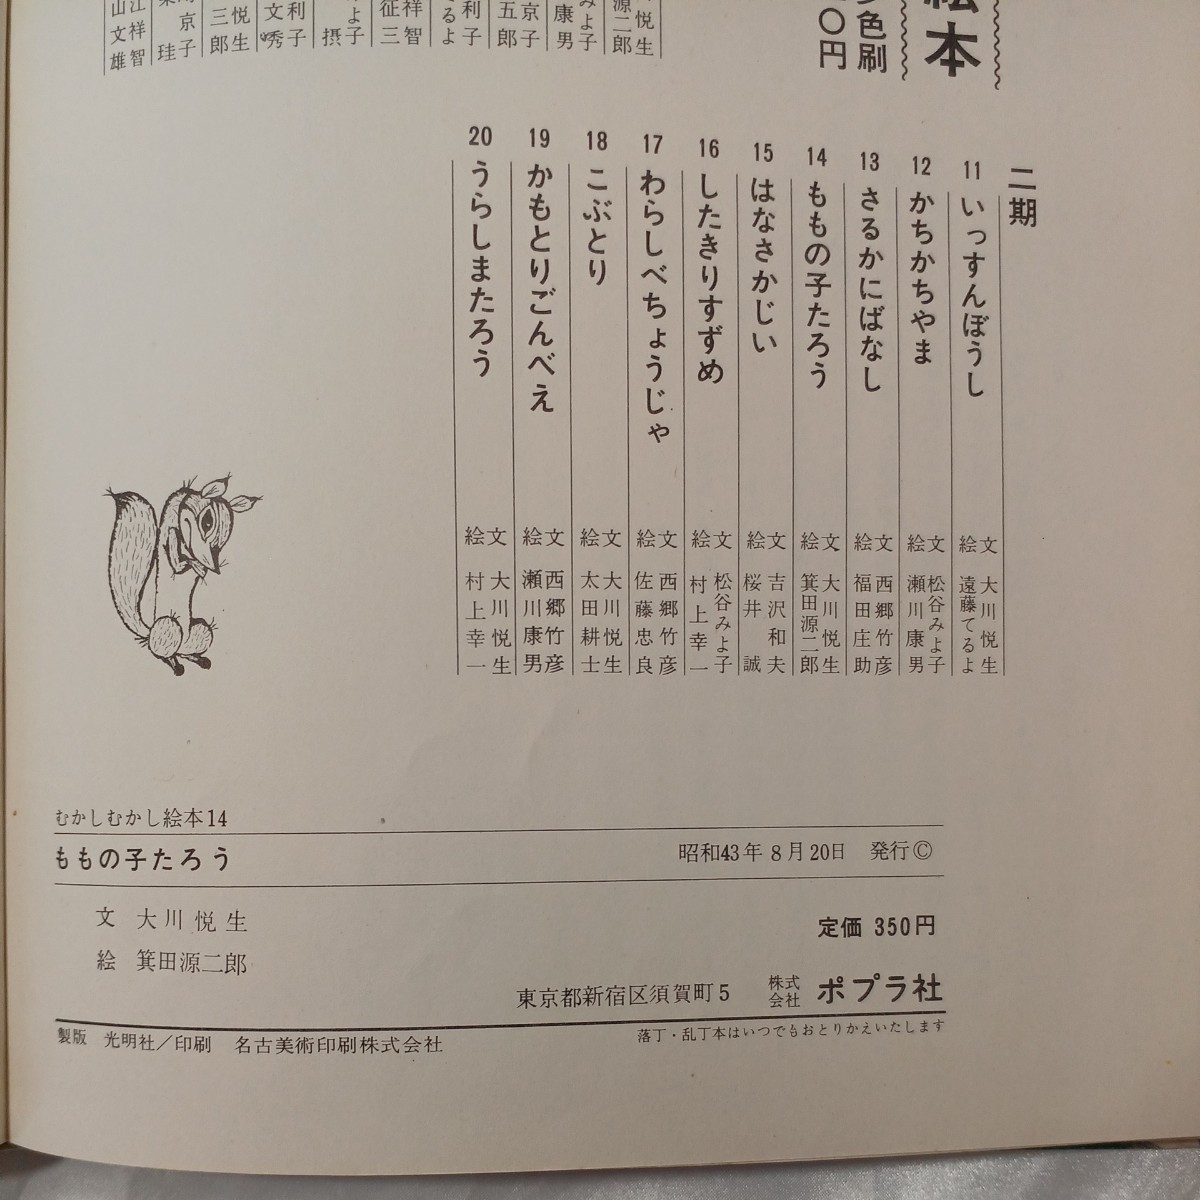 絵本
色刷
〇円
二期
11 いっすんぼうし 文 大川悦生 絵 遠藤てるよ
12 かちかちやま 文 松谷みよ子 絵 瀬川康男
13 さるかにばなし 文 西郷竹彦 絵 福田庄助
14 ももの子たろう 文 大川悦生 絵 箕田源二郎
15 はなさかじい 文 吉沢和夫 絵 桜井誠
16 したきりすずめ 文 松谷みよ子 絵 村上幸一
17 わらしべちょうじゃ 文 西郷竹彦 絵 佐藤忠良
18 こぶとり 文 大川悦生 絵 太田耕士
19 かもとりごんべえ 文 西郷竹彦 絵 瀬川康男
20 うらしまたろう 文 大川悦生 絵 村上幸一
むかしむかし絵本14
ももの子たろう
昭和43年8月20日 発行Ⓒ
文 大川悦生
定価 350円
絵 箕田源二郎
東京都新宿区須賀町5 株式会社 ポプラ社
製版 光明社/印刷 名古美術印刷株式会社
落丁・乱丁本はいつでもおとりかえいたします